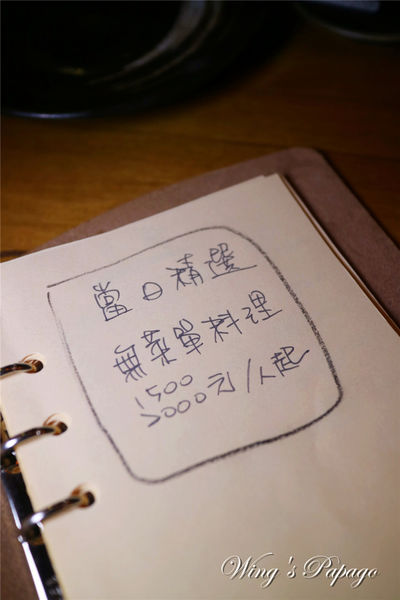 當日精選
無菜單料理
1500
2000元/人起
Wing's Papago